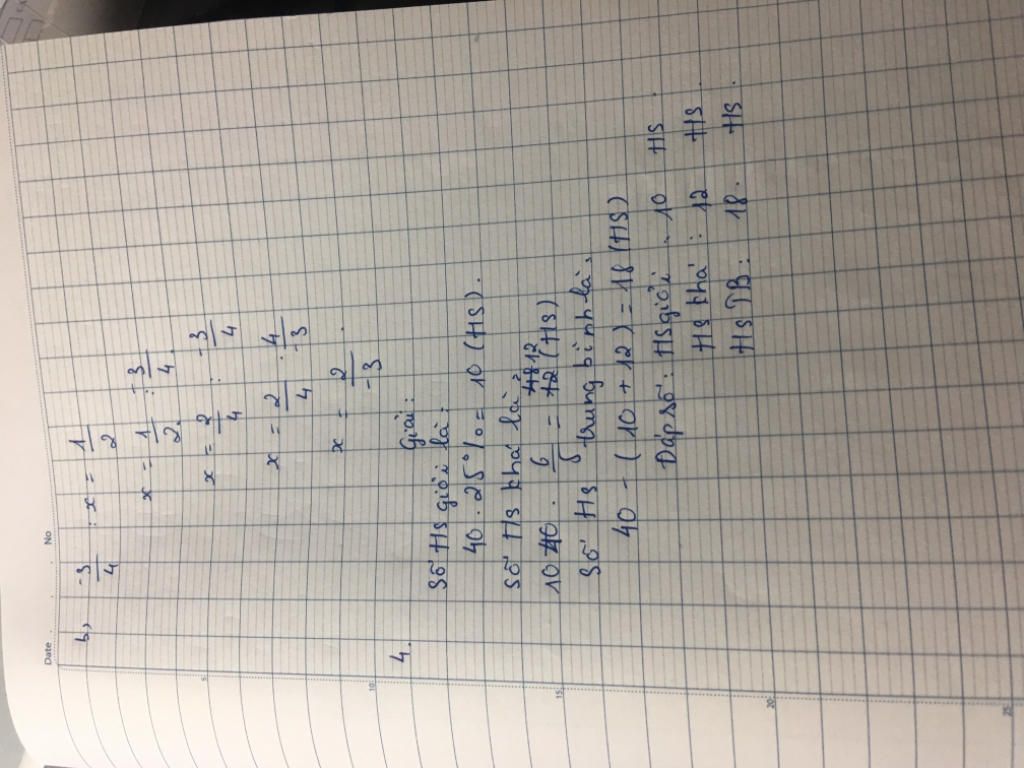 Date No
b, -3/4 : x = 1/2
x = 1/2 : -3/4
x = 2/4 : -3/4
x = 2/4 . 4/-3
x = 2/-3 .
4. Giải:
Số HS giỏi là:
40 . 25% = 10 (HS).
Số HS khá là
10 . 6/5 = 12 (HS)
Số HS trung bình là:
40 - (10 + 12) = 18 (HS)
Đáp số: HS giỏi: 10 HS.
HS khá: 12 HS.
HS TB: 18. HS.
5
10
15
20
25